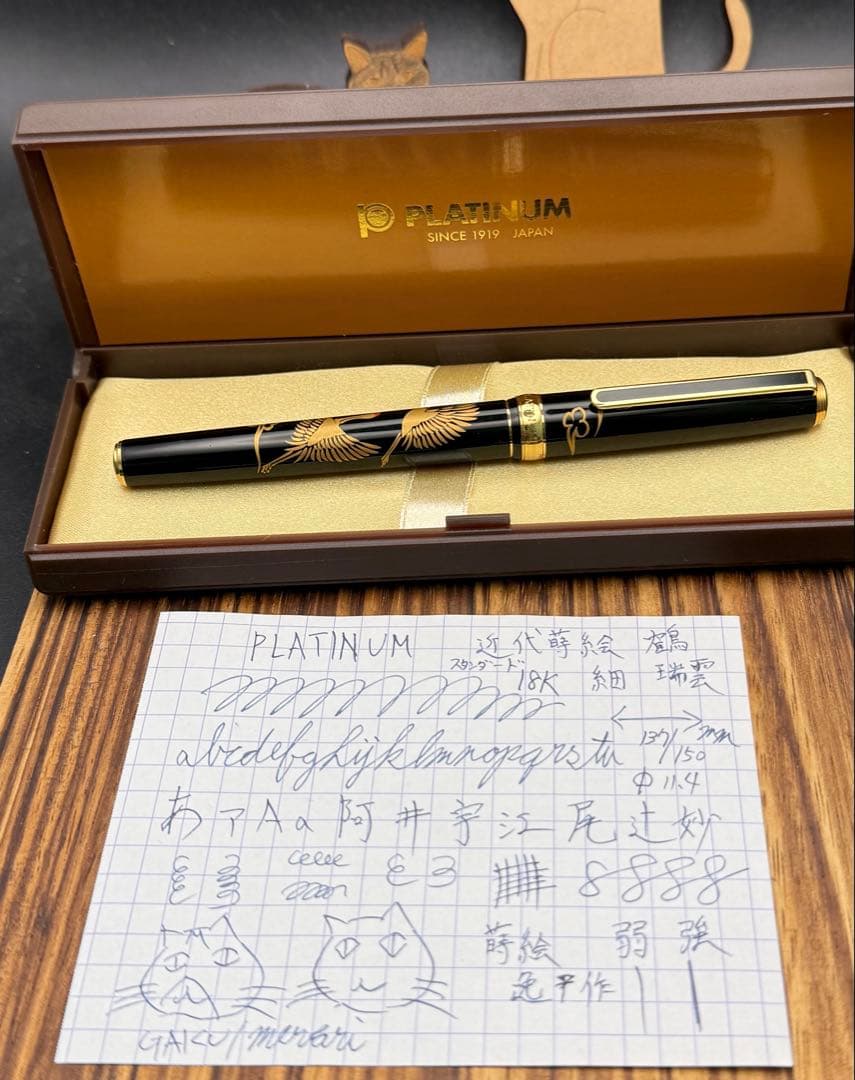 PLATINUM
SINCE 1919 JAPAN
PLATINUM 近代蒔絵 鶴
スタンダード 18K 細 瑞雲
137/150 mm
abcdefghijklmnopqrstu
Φ 11.4
あ ア A a 阿 井 宇 江 尾 辻 妙
8888
蒔絵 弱 強
作
GAKU/merari